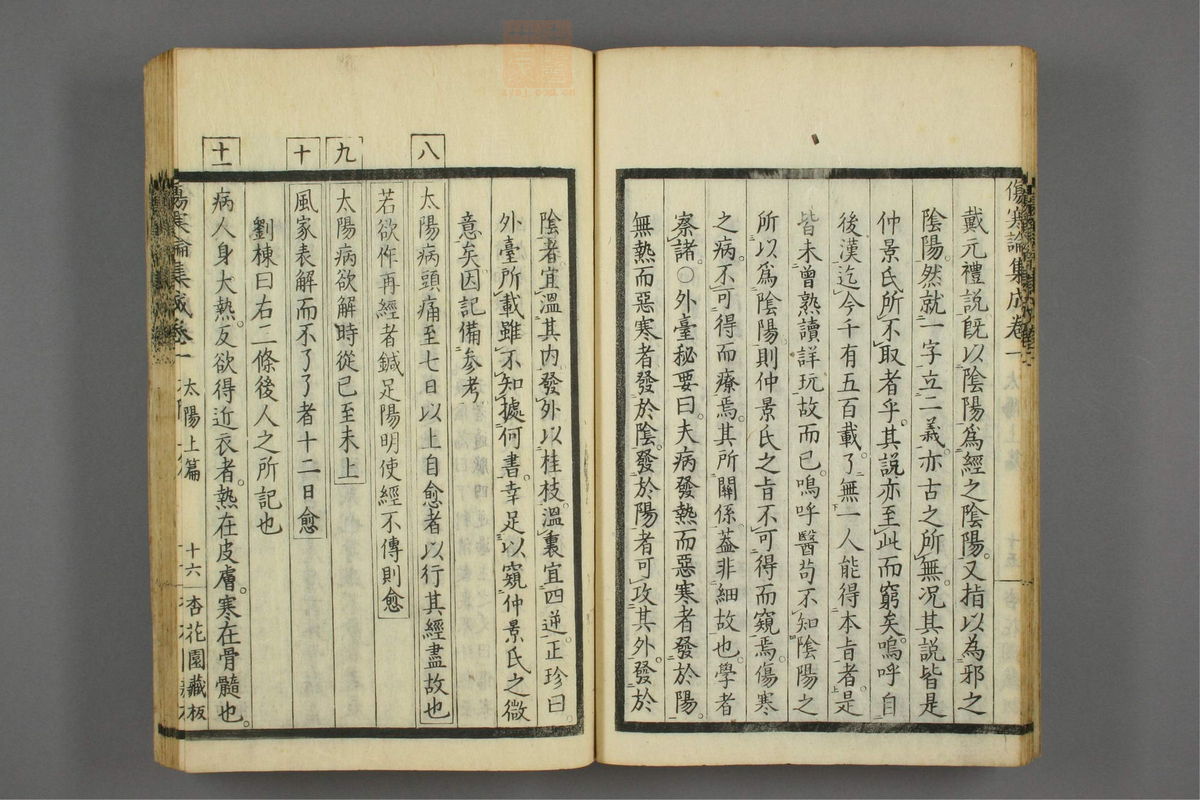 傷寒論集成卷一
戴元禮說旣以陰陽爲經之陰陽又指以為邪之
陰陽然就一字立二義亦古之所無况其說皆是
仲景氏所不取者乎其說亦至此而窮矣嗚呼自
後漢迄今千有五百載了無一人能得本旨者是
皆未曾熟讀詳玩故而已嗚呼醫苟不知陰陽之
所以爲陰陽則仲景氏之旨不可得而窺焉傷寒
之病不可得而療焉其所關係葢非細故也學者
察諸○外臺秘要曰夫病發熱而惡寒者發於陽
無熱而惡寒者發於陰發於陽者可攻其外發於
陰者宜溫其內發外以桂枝溫裏宜四逆正珍曰
外臺所載雖不知據何書幸足以窺仲景氏之微
意矣因記備參考
八
太陽病頭痛至七日以上自愈者以行其經盡故也
若欲作再經者鍼足陽明使經不傳則愈
九
太陽病欲解時從巳至未上
十
風家表解而不了了者十二日愈
劉棟曰右二條後人之所記也
十一
病人身大熱反欲得近衣者熱在皮膚寒在骨髓也
傷寒論集成卷一 太陽上篇 十六 杏花園藏板